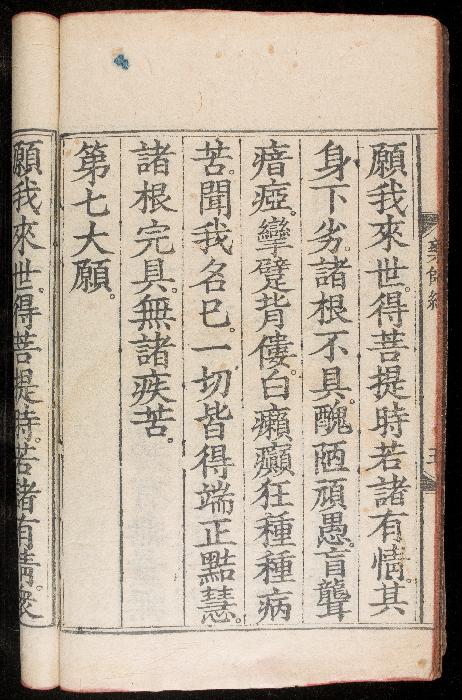 藥師經
五
願我來世。得菩提時。若諸有情。其
身下劣。諸根不具。醜陋頑愚。盲聾
瘖瘂。攣躄背僂。白癩癲狂。種種病
苦。聞我名已。一切皆得端正黠慧。
諸根完具。無諸疾苦。
第七大願。
願我來世。得菩提時。若諸有情。眾